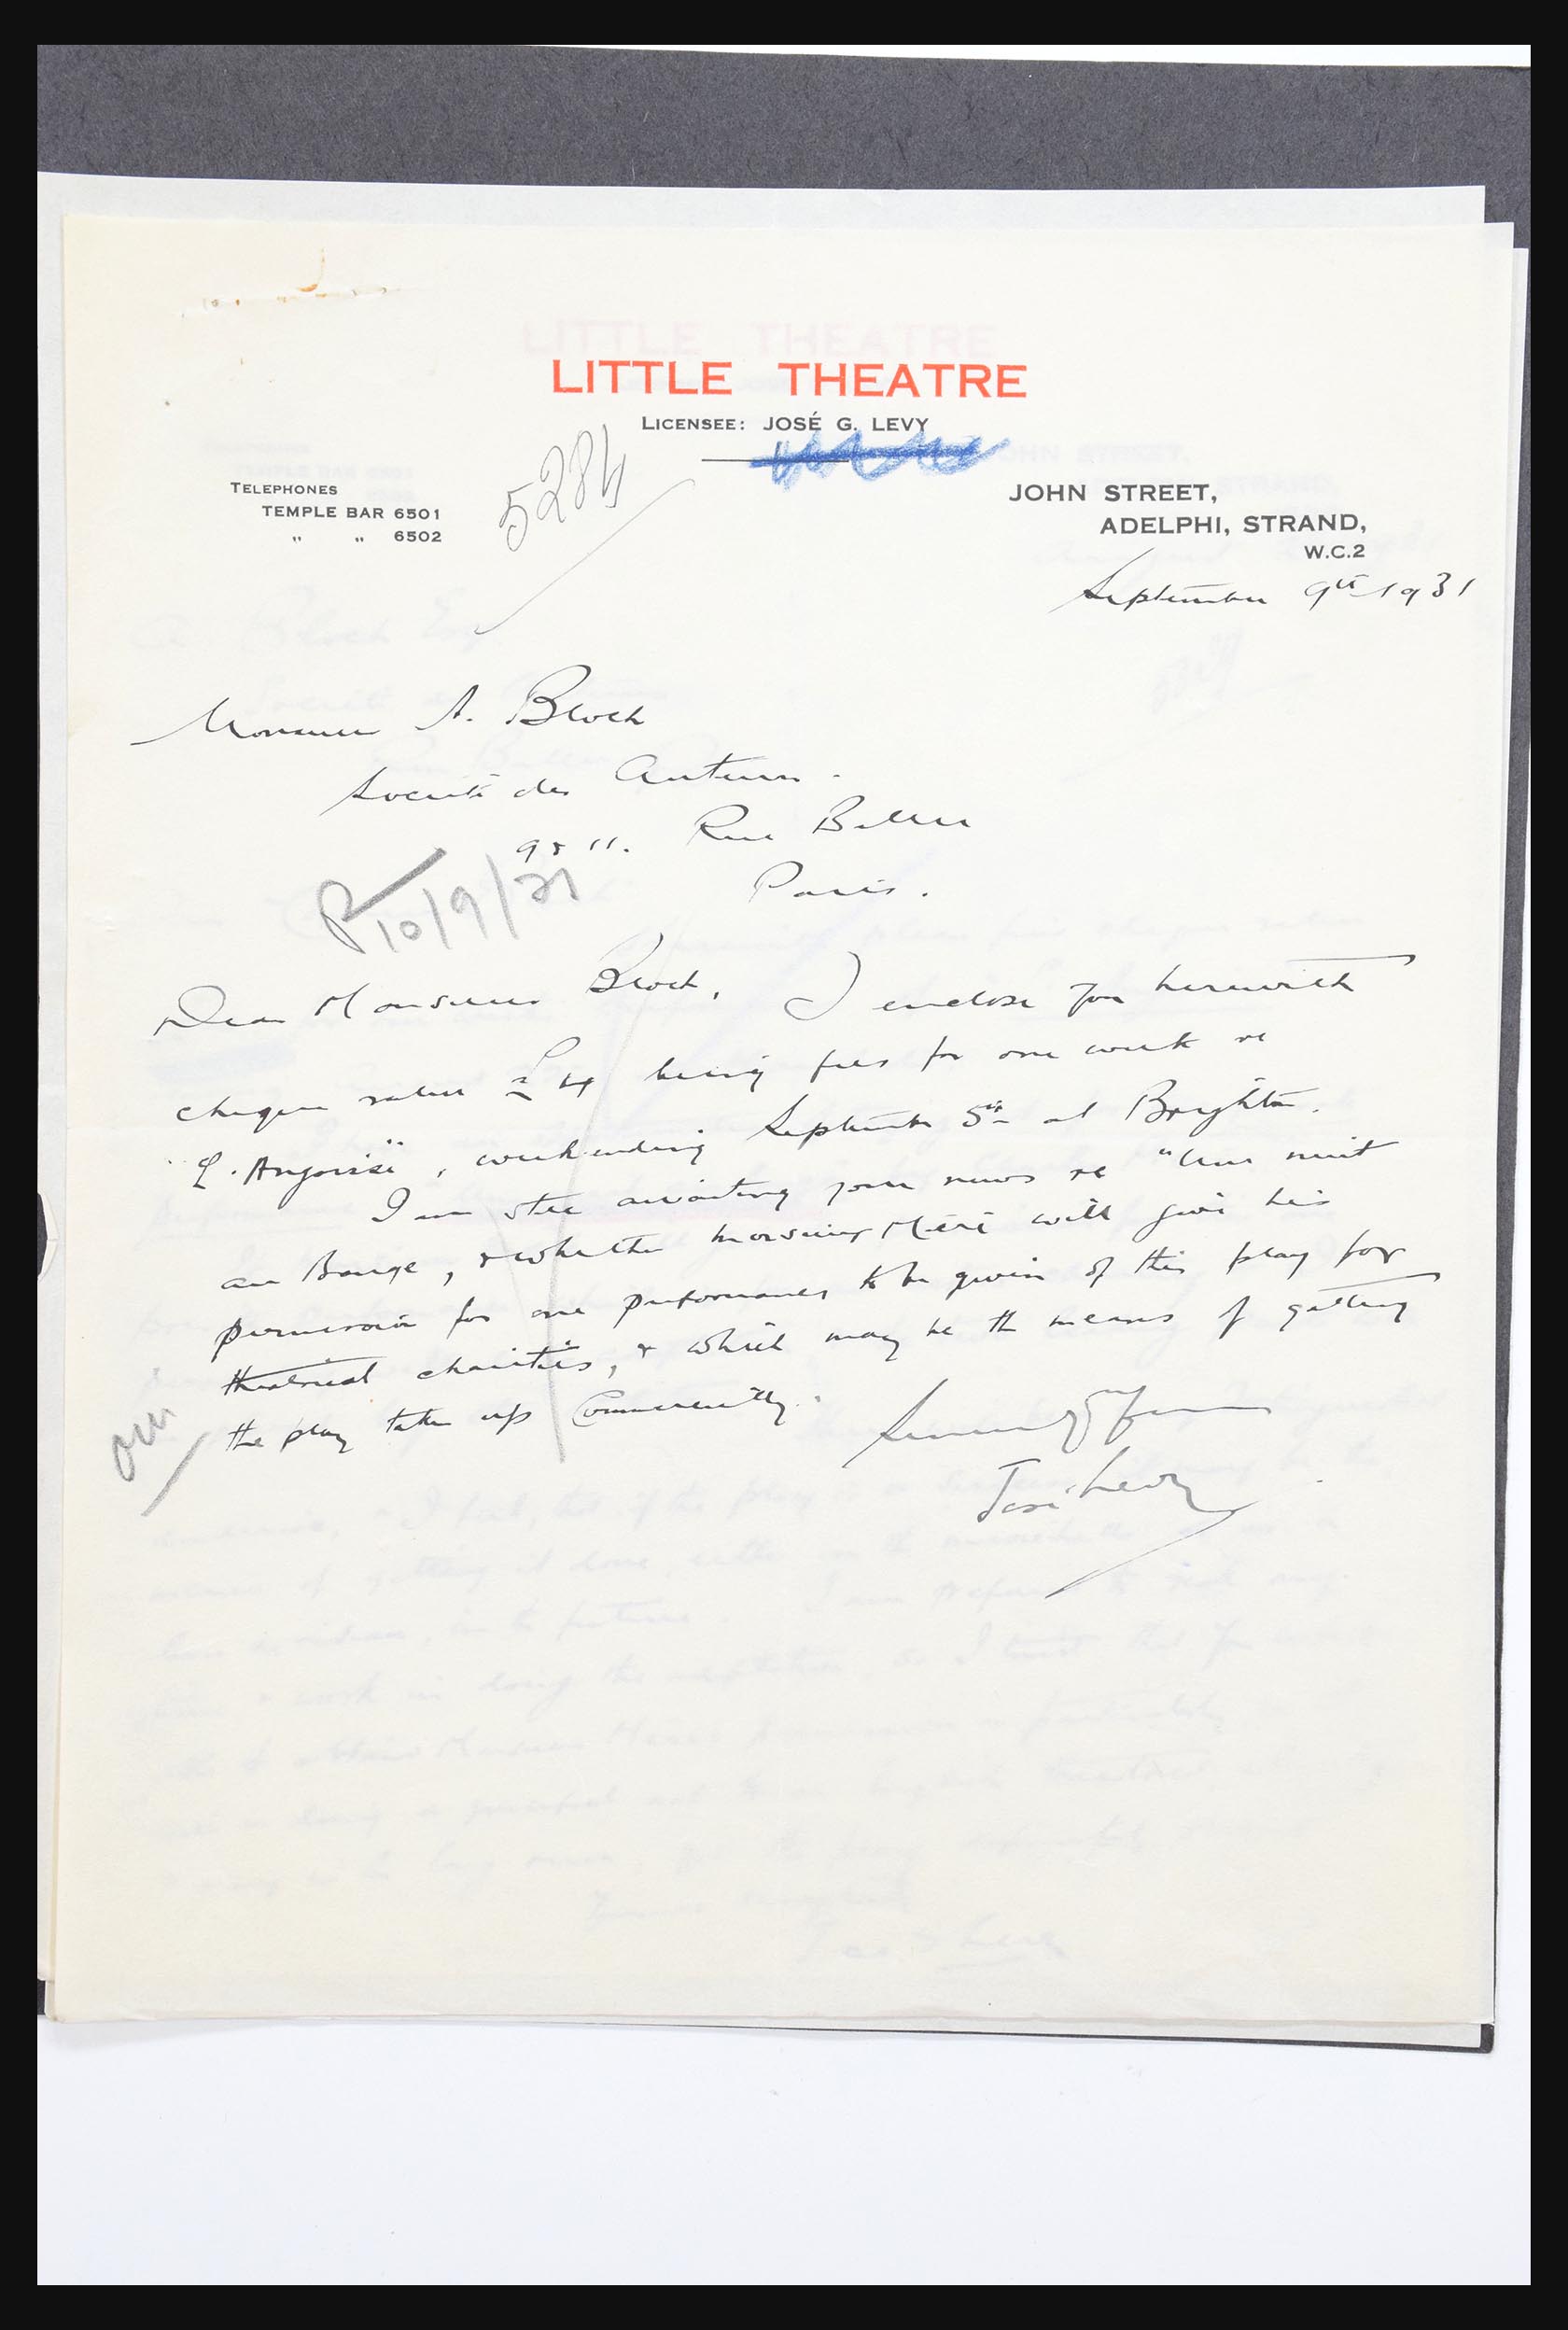 LITTLE THEATRE
LICENSEE: JOSÉ G. LEVY
5284
TELEPHONES
TEMPLE BAR 6501
" " 6502
JOHN STREET,
ADELPHI, STRAND,
W.C.2
September 9th 1931
Monsieur A. Bloch
Société des Auteurs.
9 & 11. Rue Ballu
Paris.
10/9/31
Dear Monsieur Bloch, I enclose you herewith
cheque value £4 being fees for one week re
"L'Angoisse", week ending September 5th at Brighton.
I am still awaiting your news re "Une nuit
au Bouge, & whether Monsieur Méré will give his
permission for one performance to be given of this play for
theatrical charities, & which may be the means of getting
the play taken up commercially.
Sincerely yours
José Levy
oui